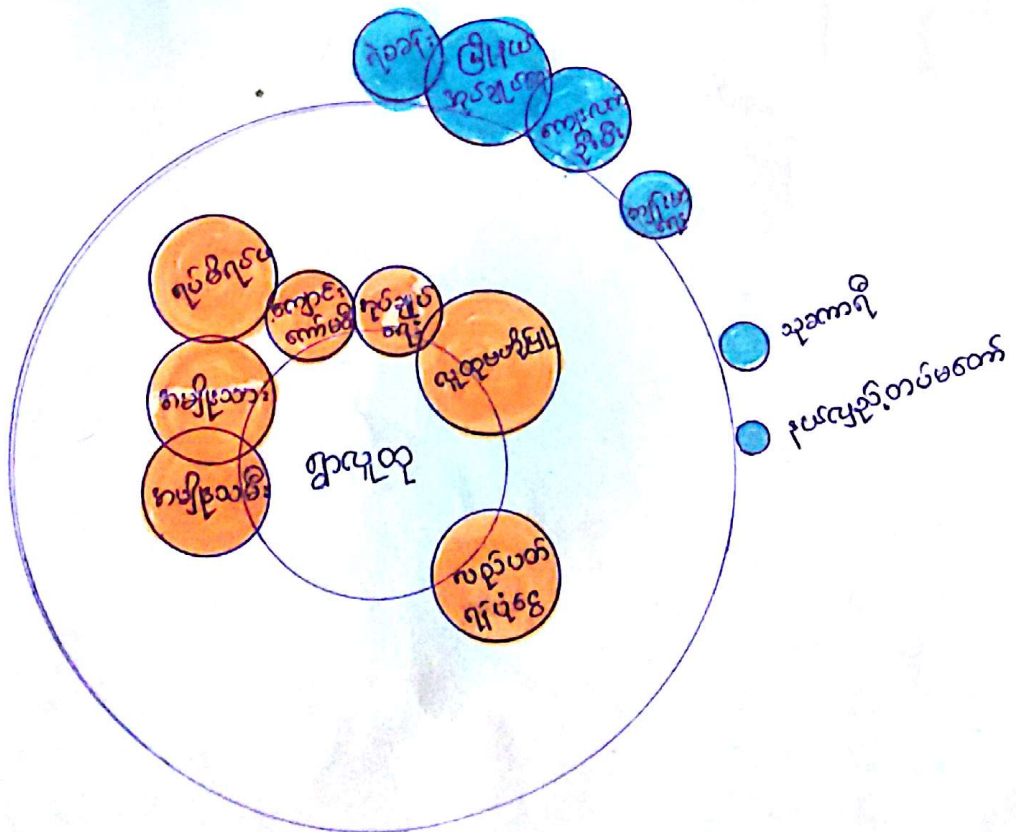 ရဲစခန်း
မြို့နယ်
အုပ်ချုပ်ရေး
ကျေးလက်
ဦးစီး
ကျန်းမာ
ရေး
ရပ်မိရပ်ဖ
ကျောင်း
ကော်မတီ
အုပ်ချုပ်
ရေး
လူထုဗဟိုပြု
အမျိုးသား
အမျိုးသမီး
ရွာလူထု
လည်ပတ်
ရန်ပုံငွေ
သုခကာရီ
နယ်လှည့်တပ်မတော်